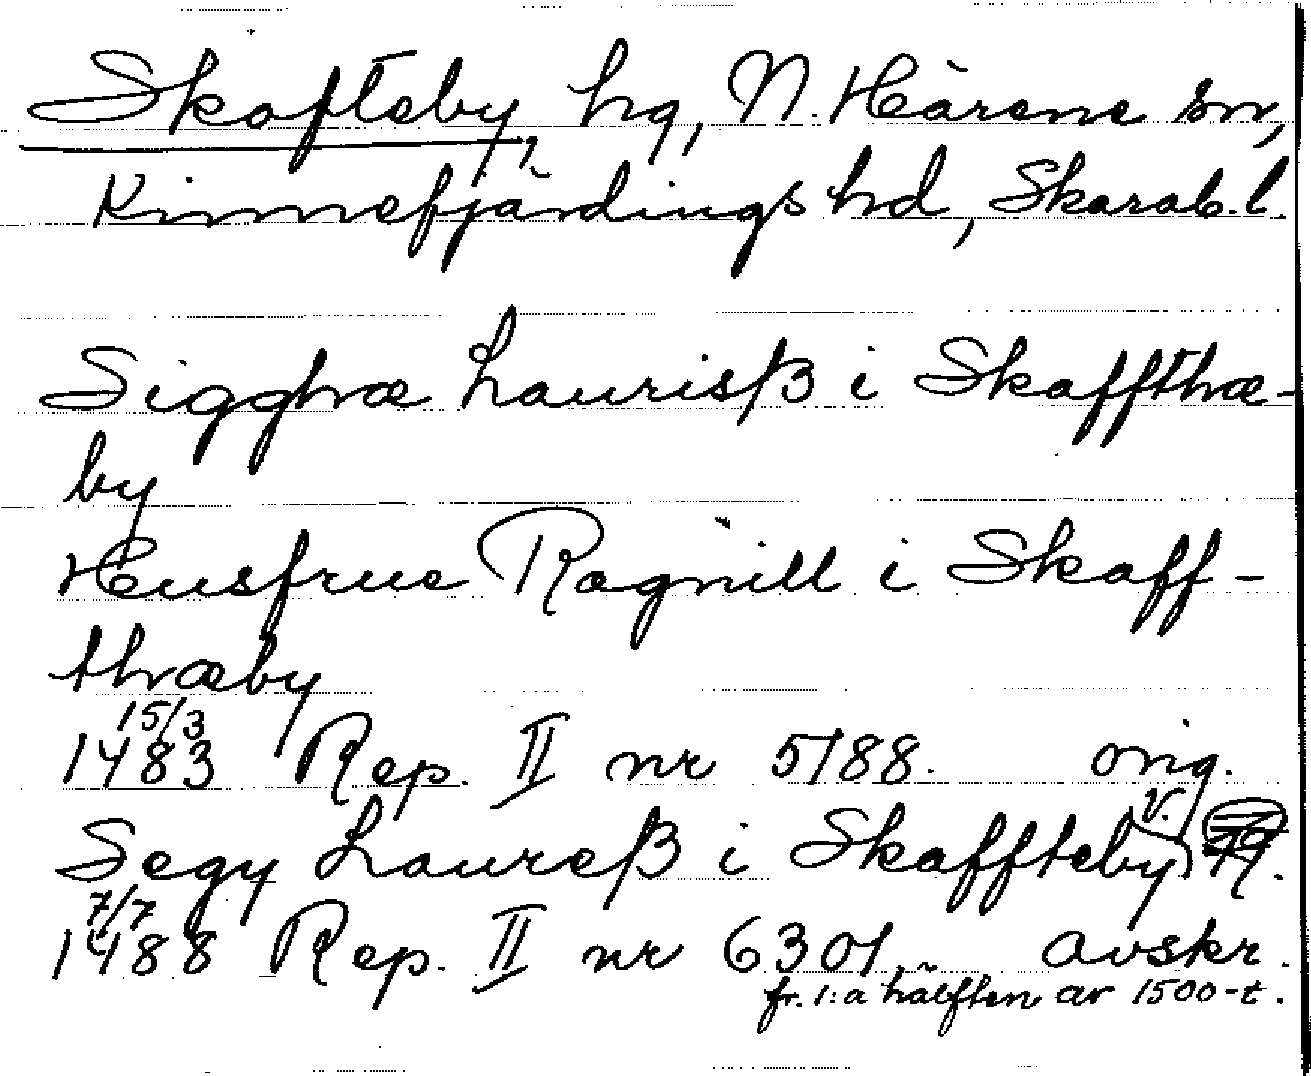 Skofteby, hg, N. Härene sn,
Kinnefjärdings hd, Skarab. l.
Sigghæ Laurisß i Skaffthæ-
by
Husfrue Ragnill i Skaff-
thræby
15/3
1483 Rep. II nr 5188. orig.
Segy Laureß i Skaffteby v.
7/7
1488 Rep. II nr 6301. avskr.
fr. 1:a hälften av 1500-t.